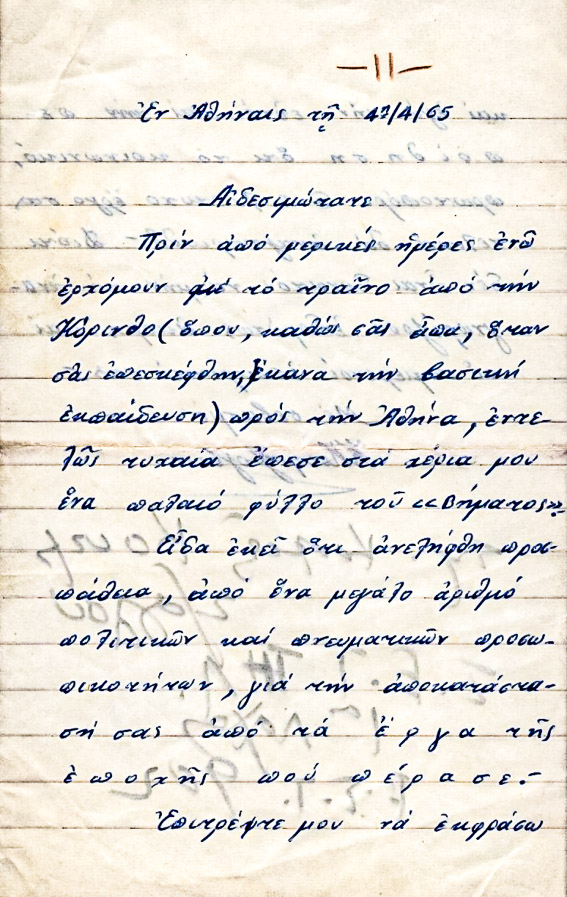 -11-
Ἐν Ἀθήναις τῇ 4/65
Αἰδεσιμώτατε
Πρίν ἀπό μερικές ἡμέρες ἐνῶ
ἐρχόμουν μέ τό τραῖνο ἀπό τήν
Κόρινθο (ὅπου, καθώς σᾶς εἶπα, ὅταν
σᾶς ἐπεσκέφθην, ἔκανα τήν βασική
ἐκπαίδευση) πρός τήν Ἀθήνα, ἐντε-
λῶς τυχαῖα ἔπεσε στά χέρια μου
ἕνα παλαιό φύλλο τοῦ «Βήματος».
Εἶδα ἐκεῖ ὅτι ἀνελήφθη προσ-
πάθεια, ἀπό ἕνα μεγάλο ἀριθμό
πολιτικῶν καί πνευματικῶν προσω-
πικοτήτων, γιά τήν ἀποκατάστα-
σή σας ἀπό τά ἔργα τῆς
ἐποχῆς πού πέρασε.-
Ἐπιτρέψτε μου νά ἐκφράσω